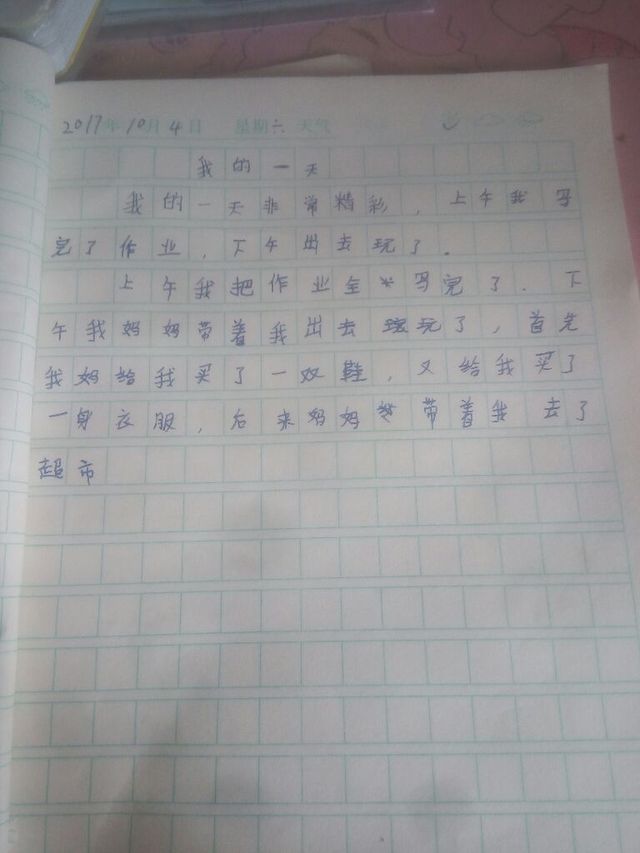 2017年10月4日 星期六 天气
我的一天
我的一天非常精彩，上午我写
完了作业，下午出去玩了。
上午我把作业全写完了．下
午我妈妈带着我出去玩了，首先
我妈给我买了一双鞋，又给我买了
一身衣服，后来妈妈带着我去了
超市